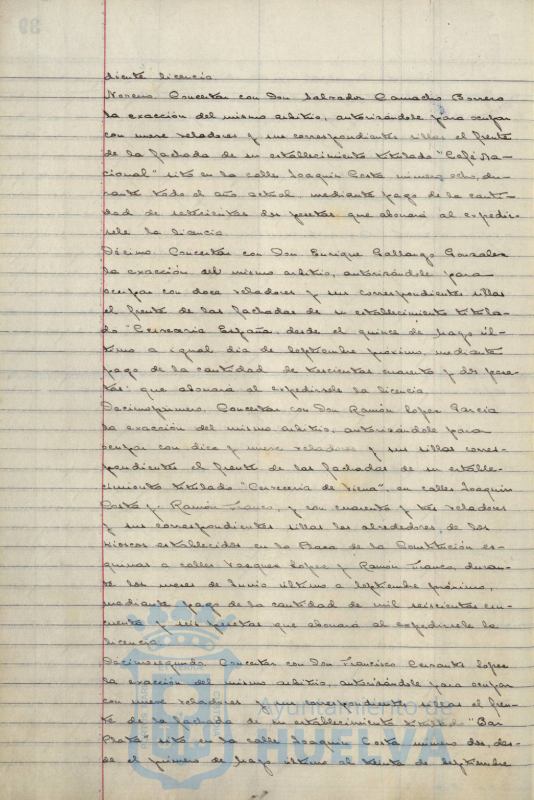 39
diente licencia
Noveno. Concertar con Don Salvador Camacho Borrero
la exacción del mismo arbitrio, autorizándole para ocupar
con nueve veladores y sus correspondientes sillas el frente
de la fachada de su establecimiento titulado "Café Na-
cional" sito en la calle Joaquín Costa número ocho, du-
rante todo el año actual, mediante pago de la canti-
dad de setecientas dos pesetas que abonará al expedír-
sele la licencia
Décimo. Concertar con Don Enrique Gallango Gonzalez
la exacción del mismo arbitrio, autorizándole para
ocupar con doce veladores y sus correspondientes sillas
el frente de las fachadas de su establecimiento titula-
do "Cervecería España, desde el quince de Mayo úl-
timo a igual día de Septiembre próximo, mediante
pago de la cantidad de trescientas cuarenta y dos pese-
tas; que abonará al expedírsele la licencia.
Decimoprimero. Concertar con Don Ramón Lopez García
la exacción del mismo arbitrio, autorizándole para
ocupar con diez y nueve veladores y sus sillas corres-
pondientes el frente de las fachadas de su estable-
cimiento titulado "Cervecería de Viena", en calles Joaquín
Costa y Ramón Franco, y con cuarenta y tres veladores
y sus correspondientes sillas los alrededores de los
Kioscos establecidos en la Plaza de la Constitución es-
quinas a calles Vazquez Lopez y Ramón Franco, duran-
te los meses de Junio último a Septiembre próximo,
mediante pago de la cantidad de mil seiscientas cin-
cuenta y seis pesetas que abonará al expedírsele la
licencia
Decimosegundo. Concertar con Don Francisco Cervantes Lopez
la exacción del mismo arbitrio, autorizándole para ocupar
con nueve veladores y sus correspondientes sillas el fren-
te de la fachada de su establecimiento titulado "Bar
Plata" sito en la calle Joaquín Costa, número dos, des-
de el primero de Mayo último al treinta de Septiembre
Ayuntamiento de
HUELVA